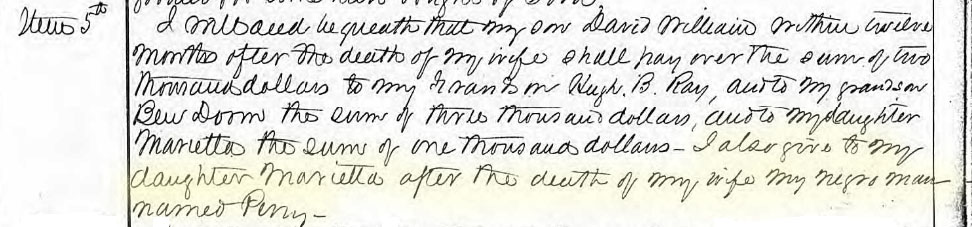 Item 5th
I will and bequeath that my son David William within twelve
months after the death of my wife shall pay over the sum of two
thousand dollars to my Grandson Hugh. B. Ray, and to my grandson
Ben Doom the sum of three thousand dollars, and to my daughter
Marietta the sum of one thousand dollars - I also give to my
daughter Marietta after the death of my wife my negro man
named Perry -